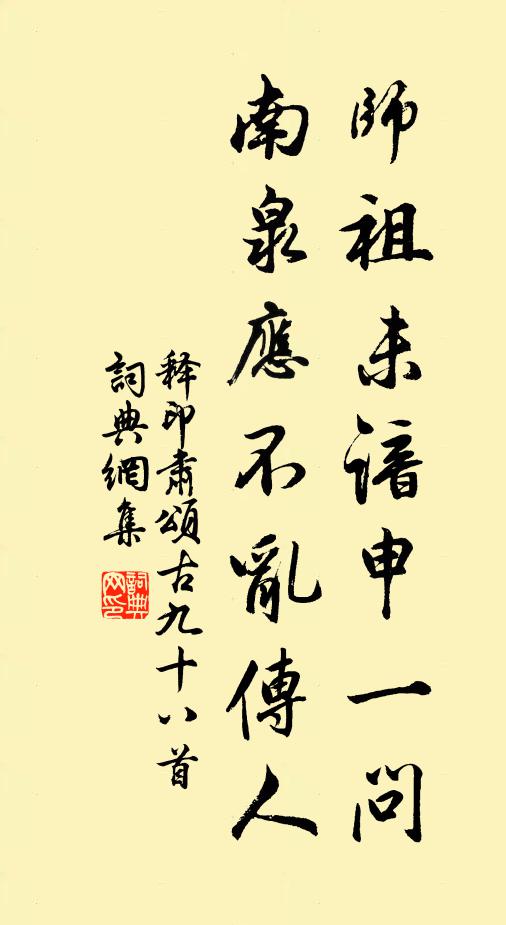 師祖未諳申一問
南泉應不亂傳人
釋印肅頌古九十八首
詞典網集
詞典网印